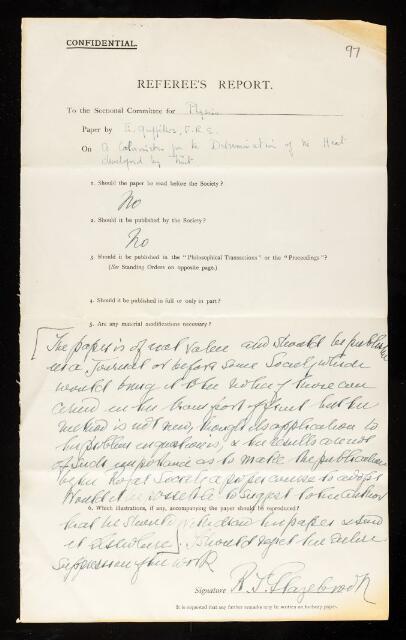 CONFIDENTIAL.
97
REFEREE'S REPORT.
To the Sectional Committee for Physics
Paper by E. Griffiths, F.R.S.
On A Calorimeter for the Determination of the Heat
developed by Fruit
1. Should the paper be read before the Society?
No
2. Should it be published by the Society?
No
3. Should it be published in the "Philosophical Transactions" or the "Proceedings"?
(See Standing Orders on opposite page.)
4. Should it be published in full or only in part?
5. Are any material modifications necessary?
[The paper is of real value and should be published
in a Journal or before some Society which
would bring it to the notice of those con
cerned in the transport of fruit but the
method is not new, though its application to
the problem in question is, & the results are not
of such importance as to make the publication
by the Royal Society a proper course to adopt
Would it be possible to suggest to the author
6. Which illustrations, if any, accompanying the paper should be reproduced?
that he should withdraw his paper & send
it elsewhere]. I should regret the entire
suppression of the work
Signature R. T. Glazebrook
It is requested that any further remarks may be written on ordinary paper.